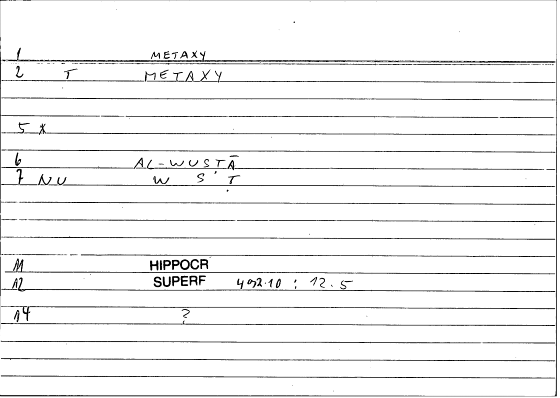 1 METAXY
2 T METAXY
5 *
6 AL-WUSTĀ
7 NU W Ṣ Ṭ
11 HIPPOCR
12 SUPERF 492.10 : 12.5
14 ?